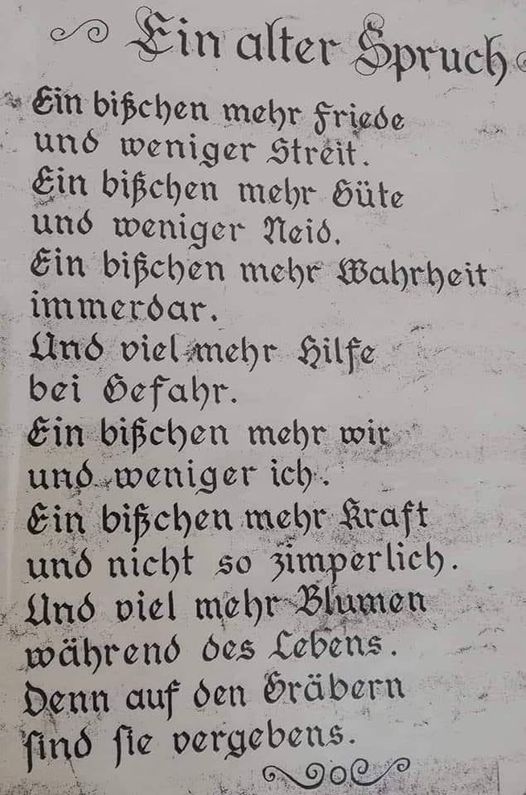 Ein alter Spruch
Ein bißchen mehr Friede
und weniger Streit.
Ein bißchen mehr Güte
und weniger Neid.
Ein bißchen mehr Wahrheit
immerdar.
Und viel mehr Hilfe
bei Gefahr.
Ein bißchen mehr wir
und weniger ich.
Ein bißchen mehr Kraft
und nicht so zimperlich.
Und viel mehr Blumen
während des Lebens.
Denn auf den Gräbern
sind sie vergebens.